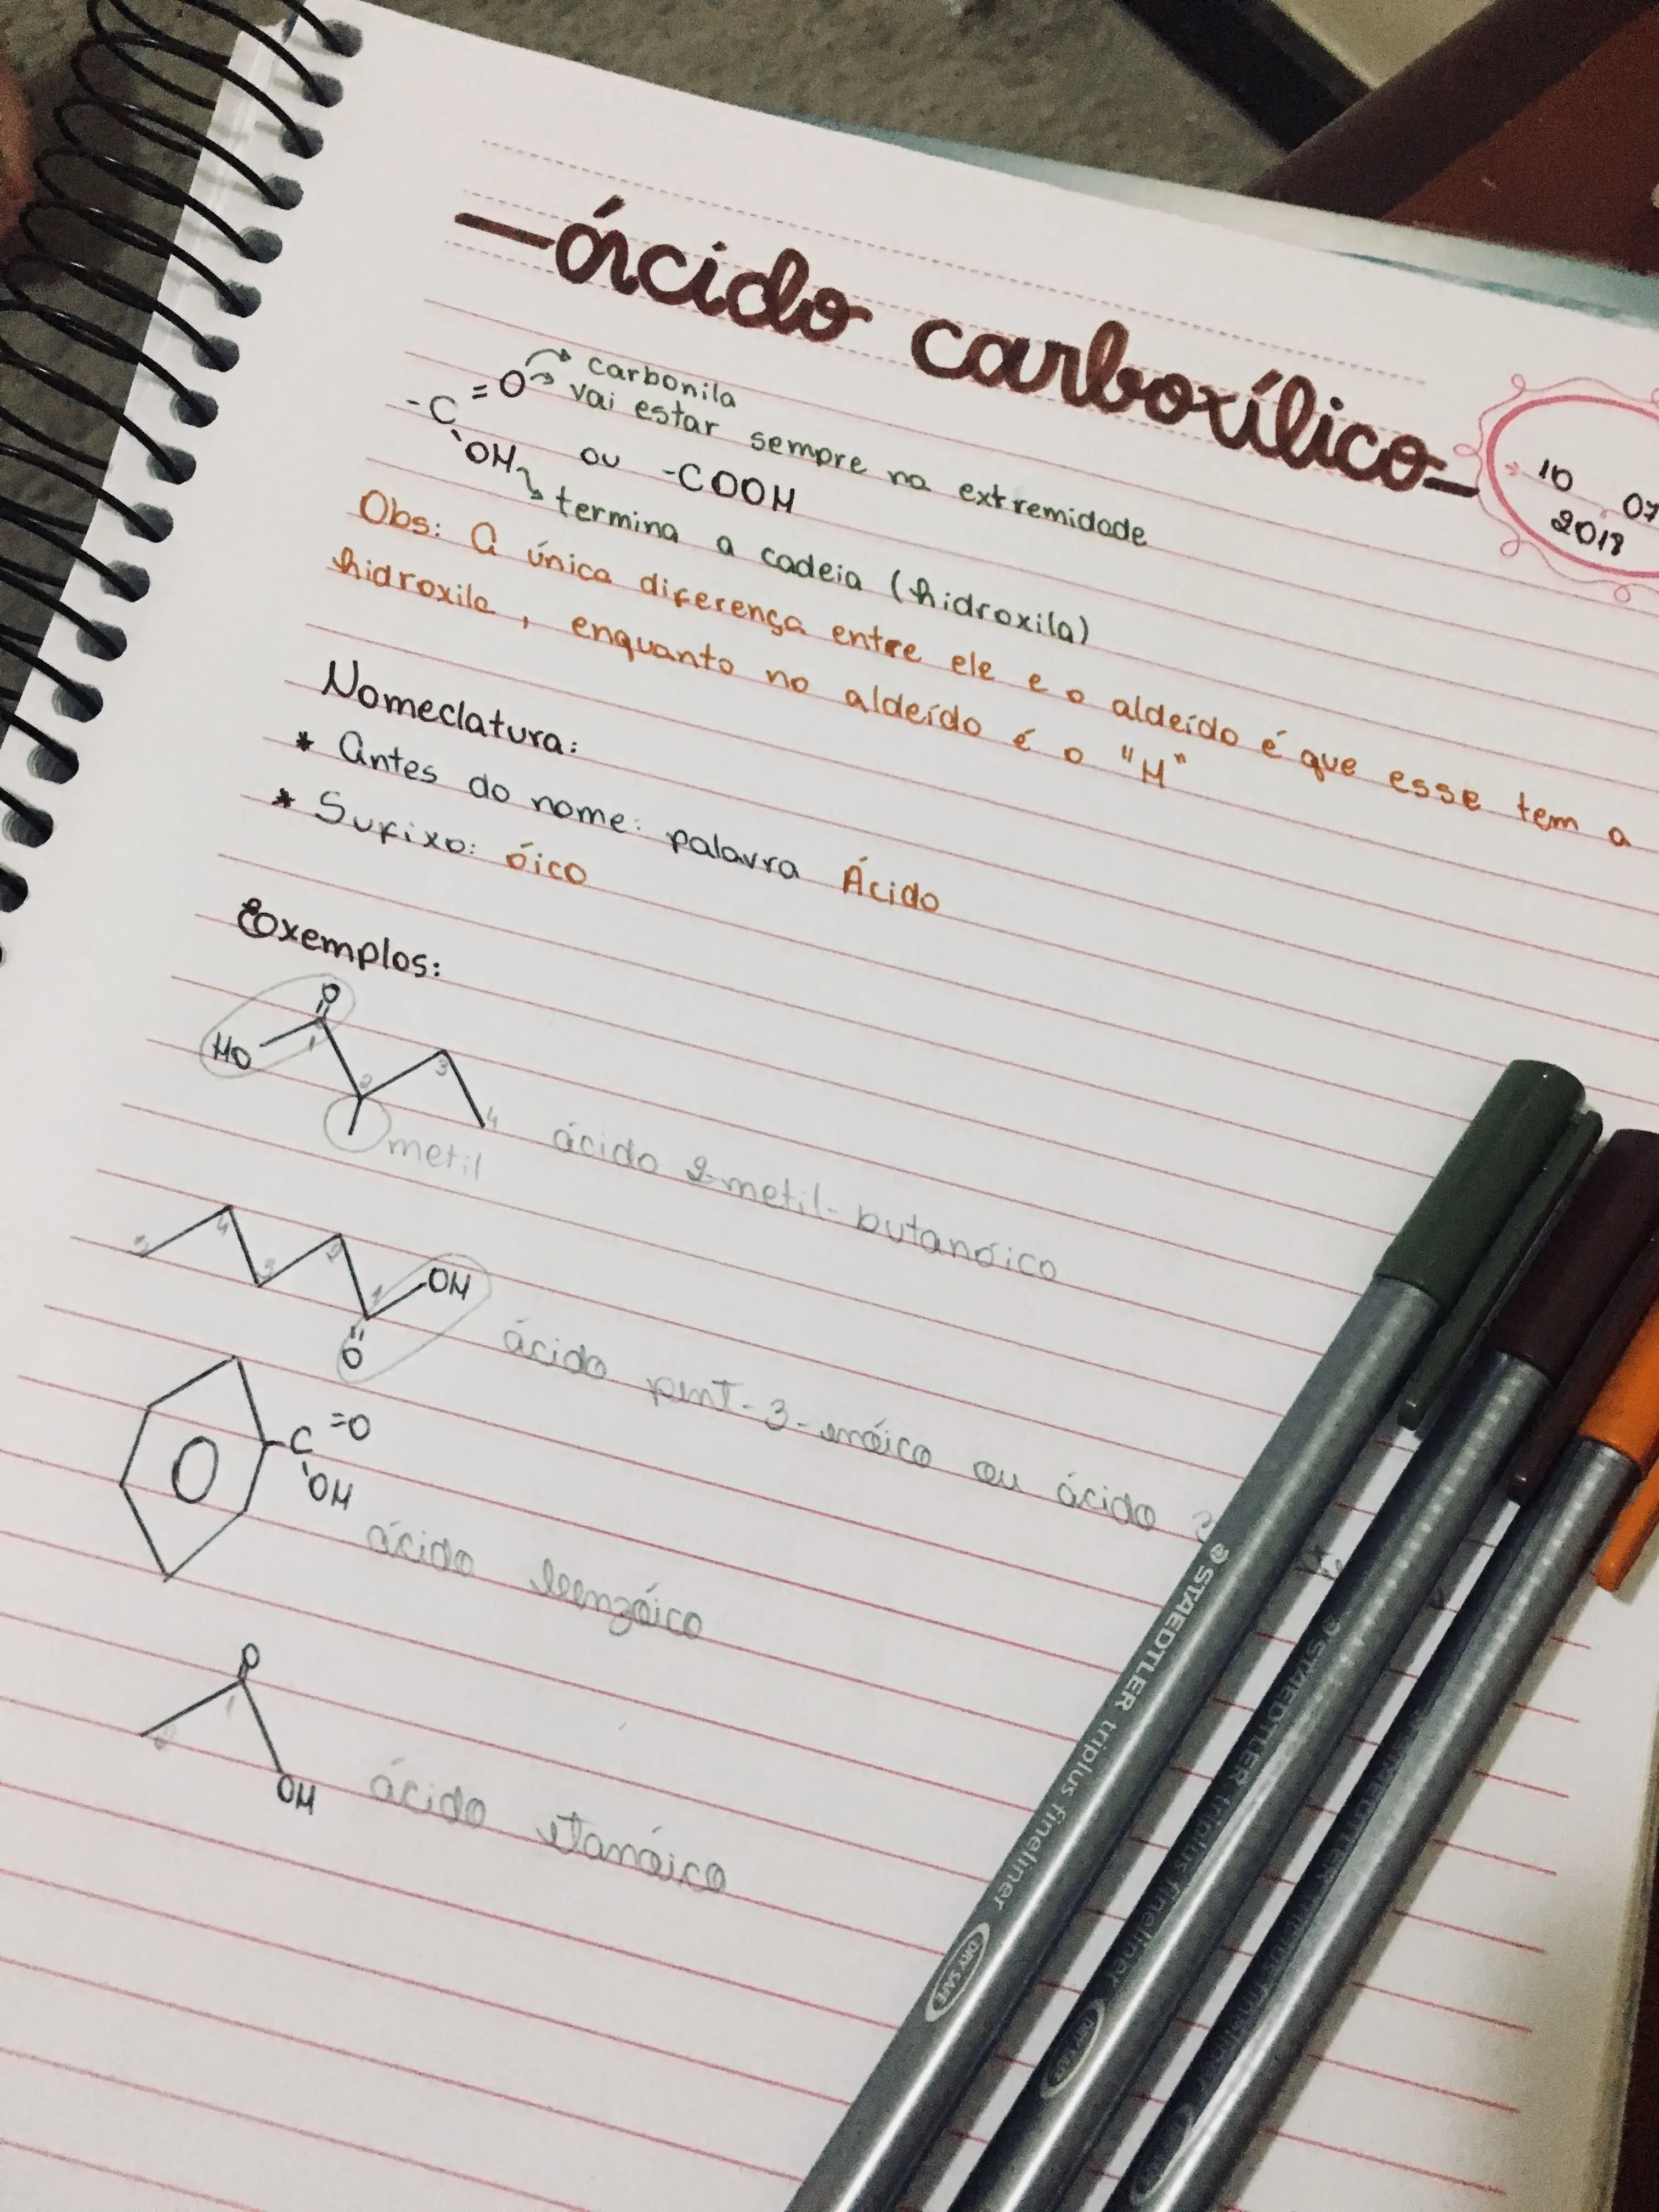 -ácido carboxílico-
10 07
2018
carbonila
-C =O vai estar sempre na extremidade
OH ou -COOH
termina a cadeia (hidroxila)
Obs: A única diferença entre ele e o aldeído é que esse tem a
hidroxila, enquanto no aldeído é o "H"
Nomeclatura:
* Antes do nome: palavra Ácido
* Sufixo: óico
Exemplos:
O
HO 1 2 3 4
metil ácido 2-metil-butanóico
5 4 3 2 1 OH
O
ácido pent-3-enóico ou ácido 3
O C =O
OH
ácido benzóico
O
2 1
OH ácido etanóico
STAEDTLER triplus fineliner DRY SAFE
STAEDTLER triplus fineliner DRY SAFE
STAEDTLER triplus fineliner